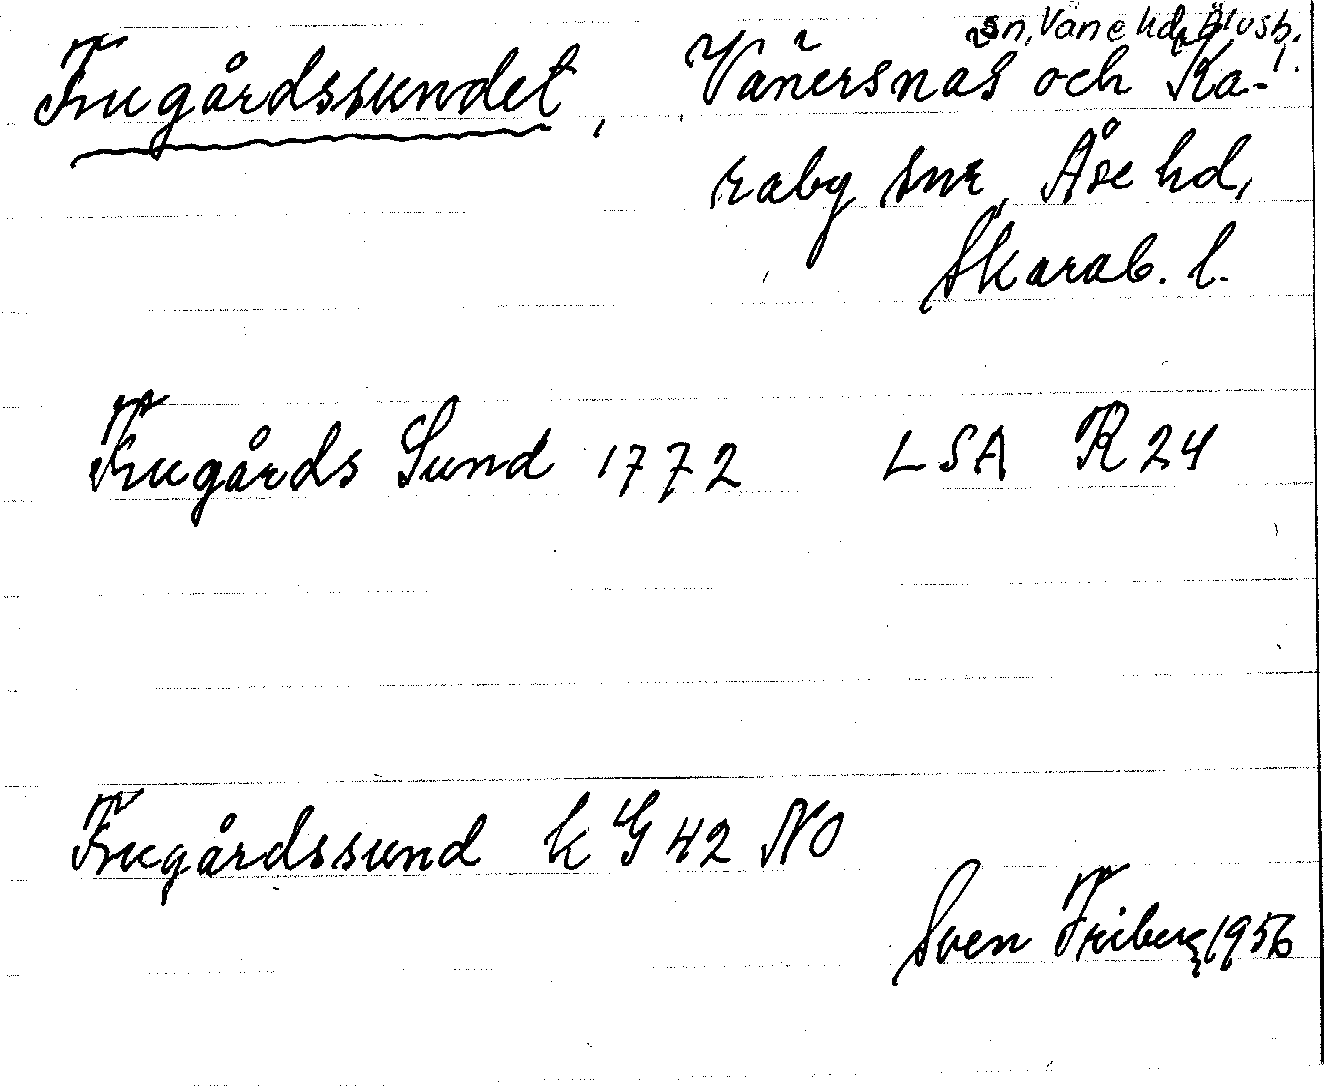 sn, Väne hd, Älvsb. l.
Frugårdssundet, Vänersnäs och Ka-
raby snr, Åse hd,
Skarab. l.
Frugårds Sund 1772 LSA R 24
Frugårdssund k G 42 NO
Sven Friberg 1956